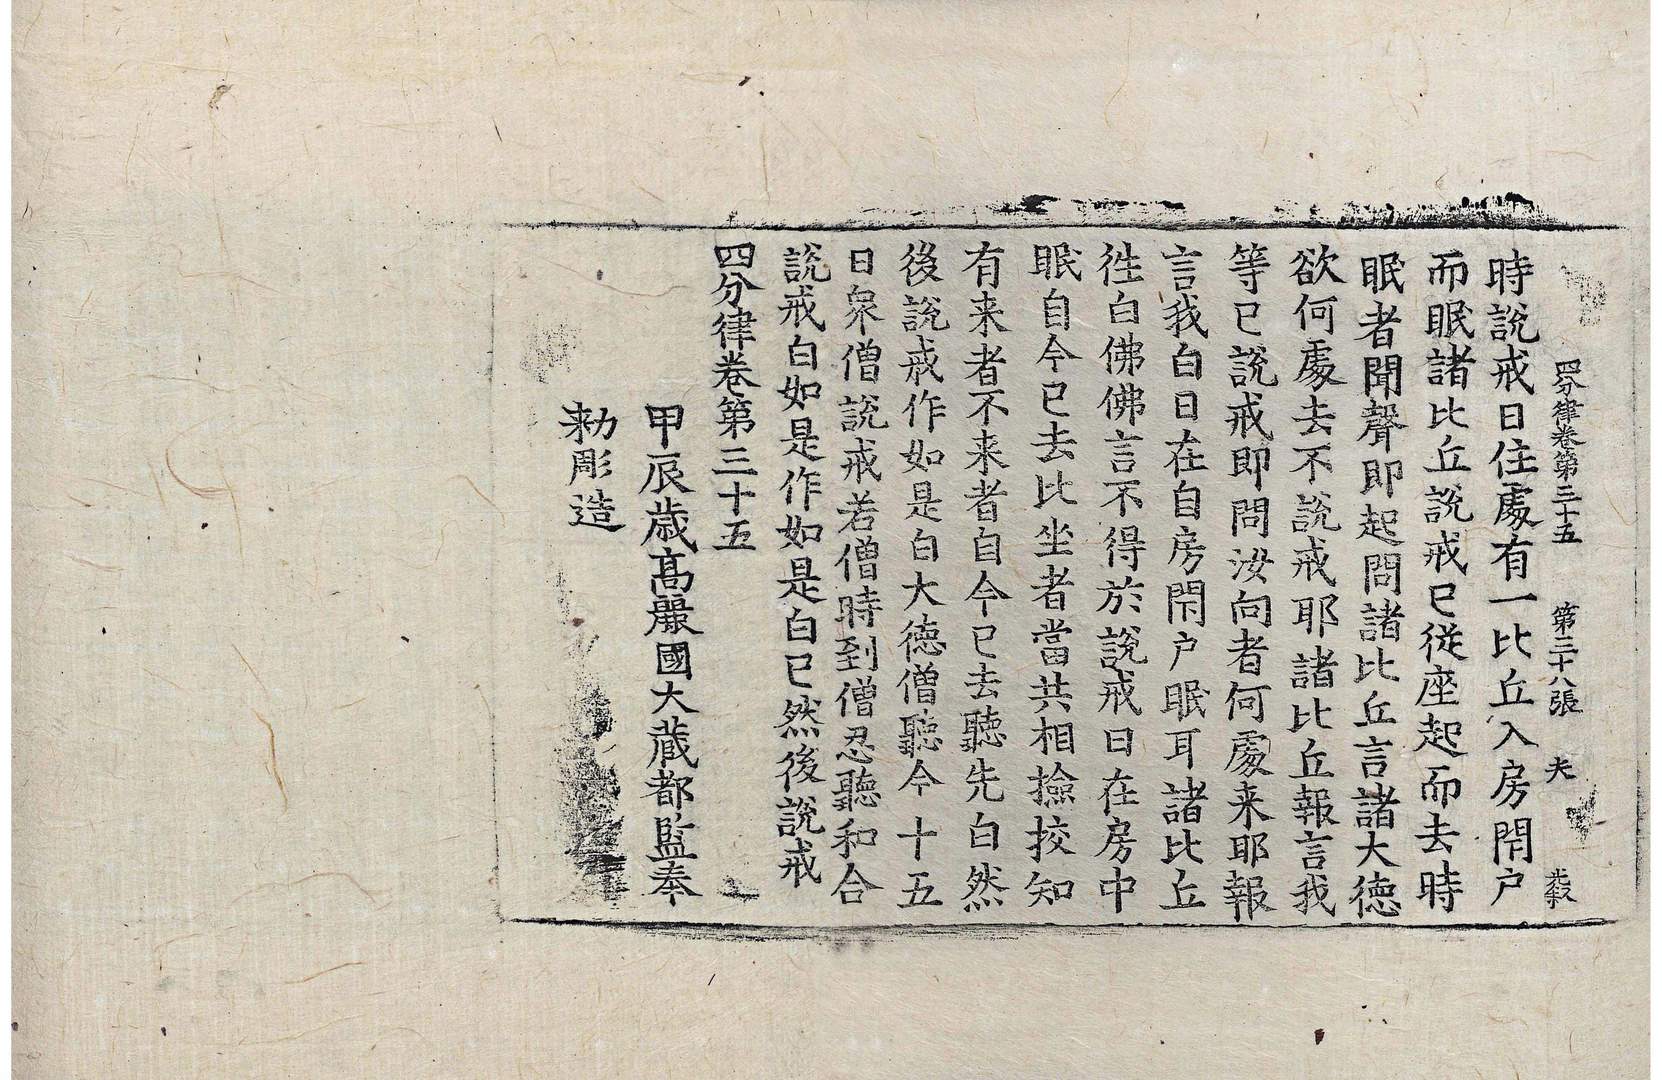 四分律卷第三十五 第三十八張 夫
時說戒日住處有一比丘入房閇户
而眠諸比丘說戒已從座起而去時
眠者聞聲即起問諸比丘言諸大德
欲何處去不說戒耶諸比丘報言我
等已說戒即問汝向者何處来耶報
言我白日在自房閇户眠耳諸比丘
徃白佛佛言不得於說戒日在房中
眠自今已去比坐者當共相撿挍知
有来者不来者自今已去聽先白然
後說戒作如是白大德僧聽今十五
日衆僧說戒若僧時到僧忍聽和合
說戒白如是作如是白已然後說戒
四分律卷第三十五
甲辰歲高麗國大藏都監奉
勅彫造